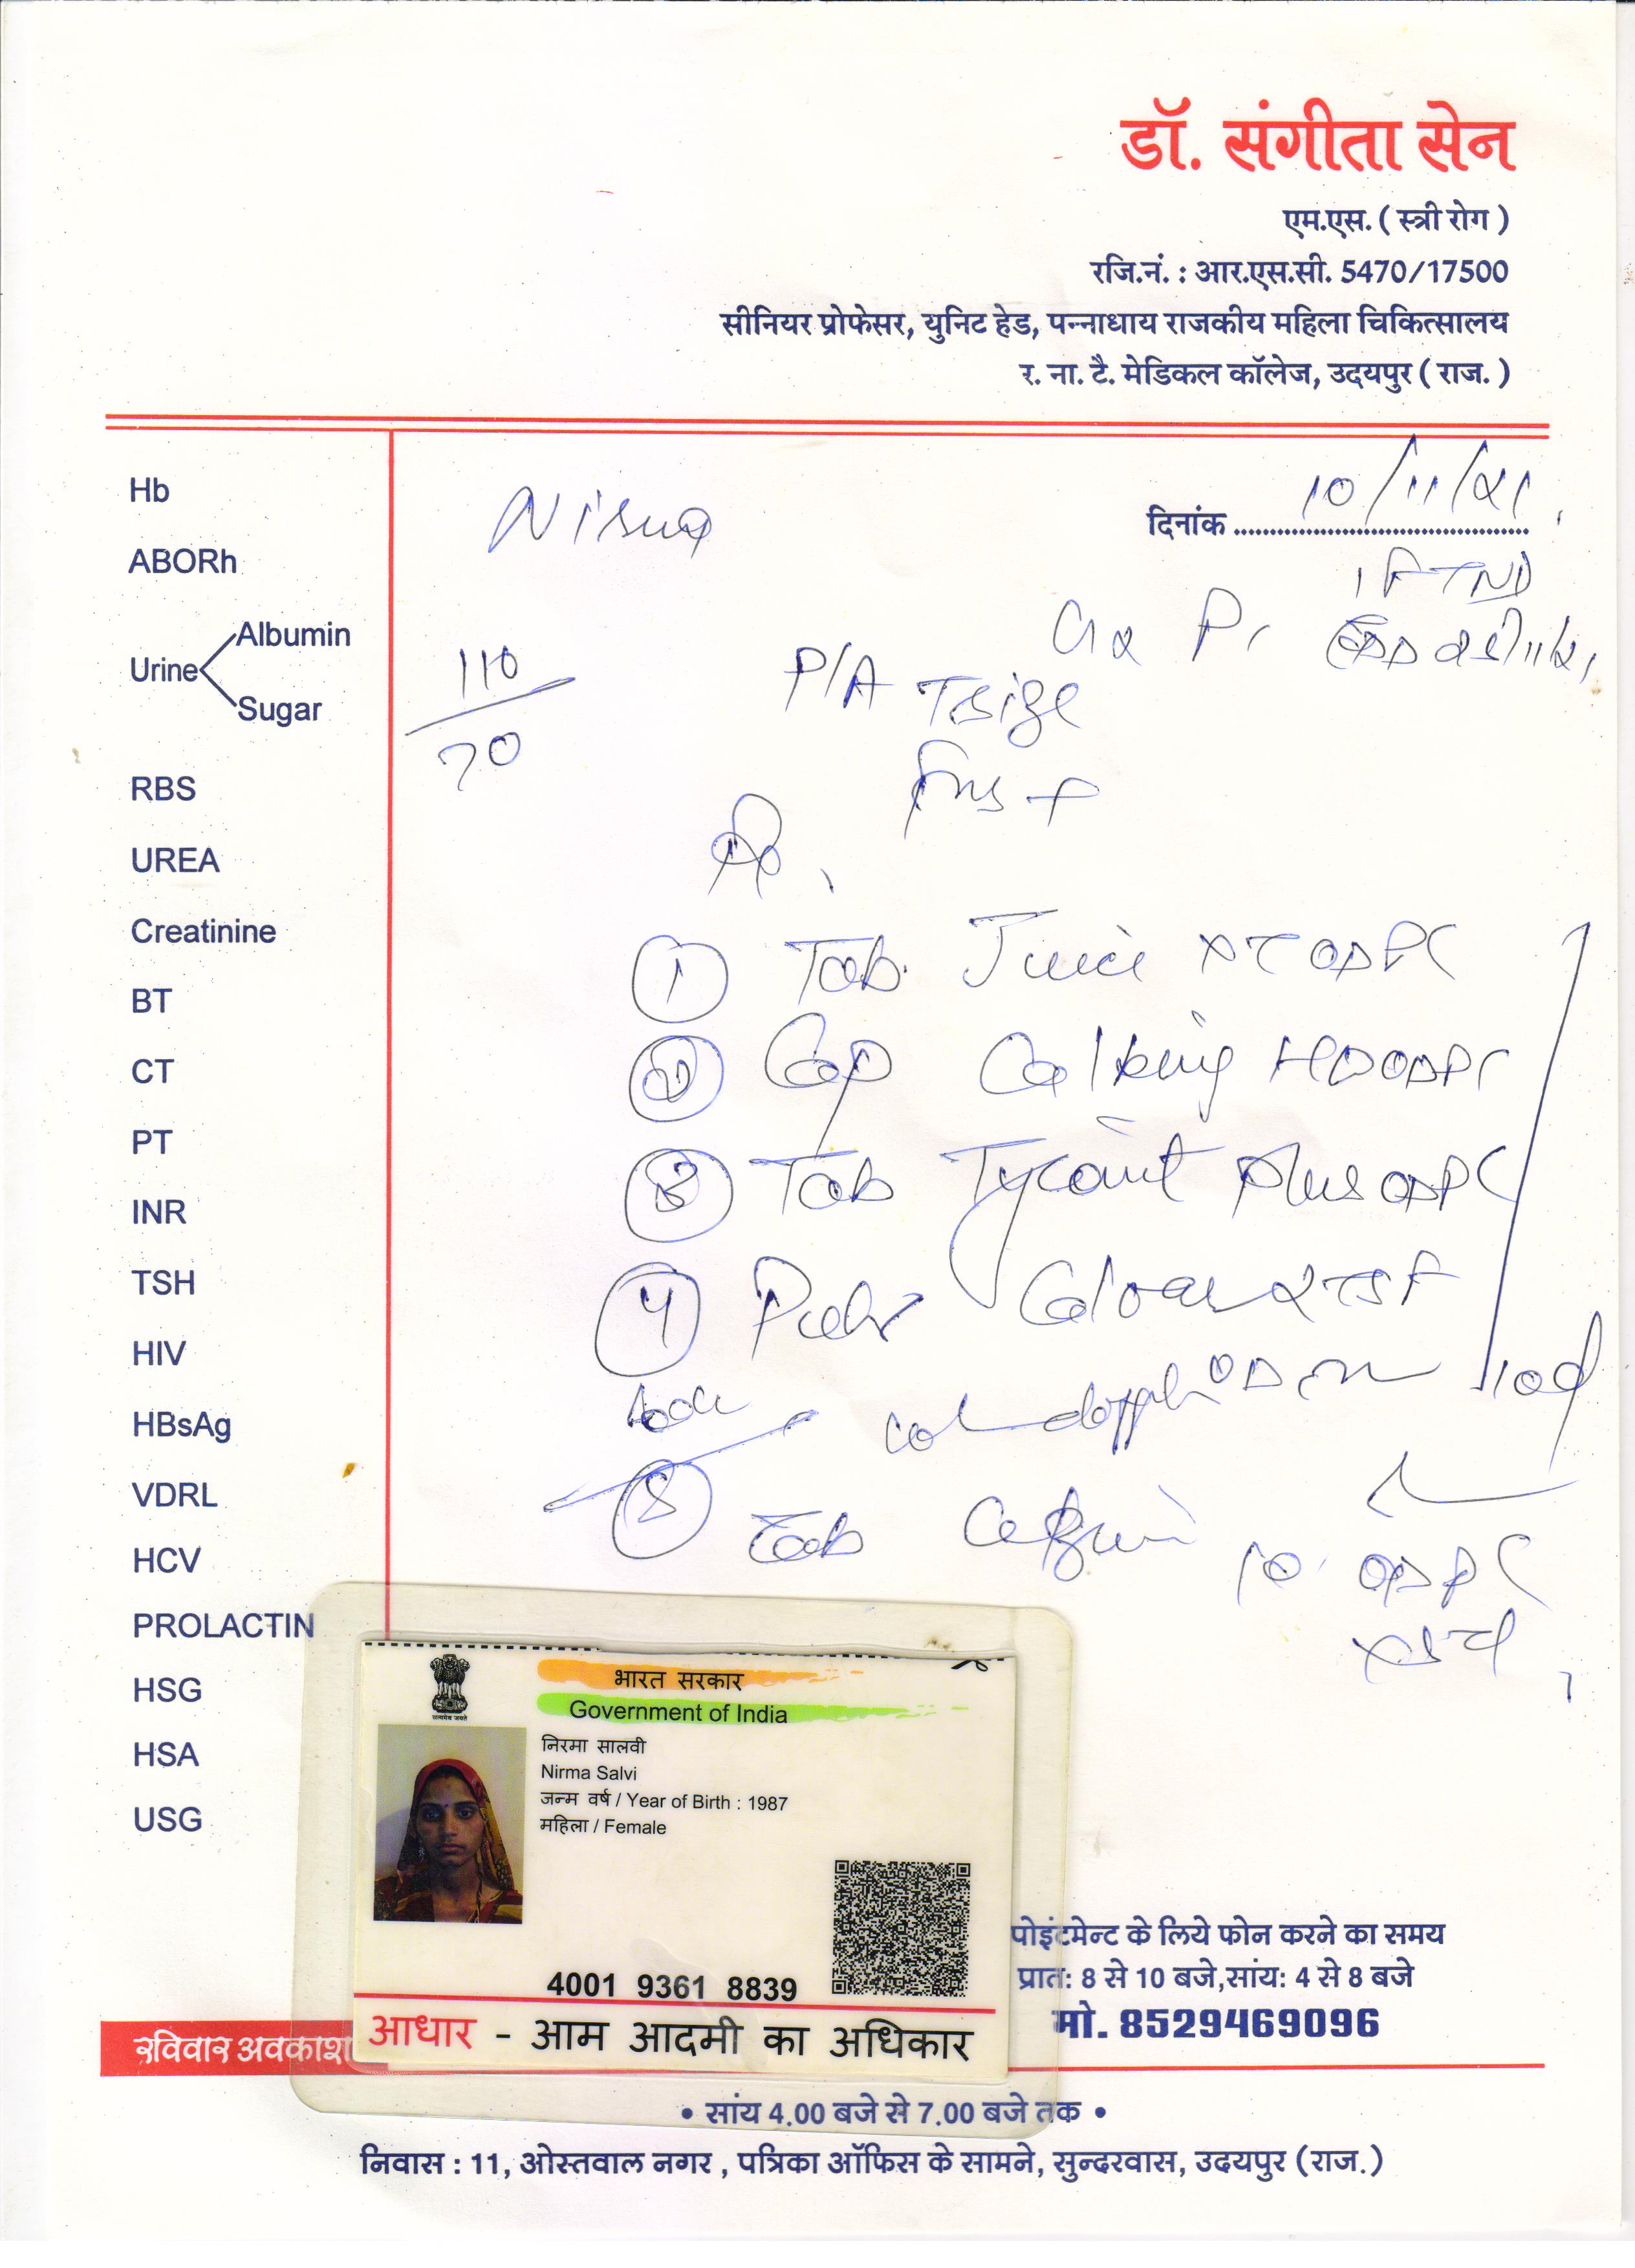 डॉ. संगीता सेन
एम.एस. ( स्त्री रोग )
रजि.नं. : आर.एस.सी. 5470/17500
सीनियर प्रोफेसर, युनिट हेड, पन्नाधाय राजकीय महिला चिकित्सालय
र. ना. टै. मेडिकल कॉलेज, उदयपुर ( राज. )
दिनांक 10/11/21
1 FTND
G2 P1 EDD
P/A T size
110/70
FHS +
Rx
① Tab. XT OD PC
② Cap HD OD PC
③ Tab Plus OD PC
④ 2 TSF
OD 10 d
col doppler
⑤ Tab OD PC
Hb
ABORh
Urine
Albumin
Sugar
RBS
UREA
Creatinine
BT
CT
PT
INR
TSH
HIV
HBsAg
VDRL
HCV
PROLACTIN
HSG
HSA
USG
भारत सरकार
Government of India
सत्यमेव जयते
निरमा सालवी
Nirma Salvi
जन्म वर्ष / Year of Birth : 1987
महिला / Female
4001 9361 8839
आधार - आम आदमी का अधिकार
पोइंटमेन्ट के लिये फोन करने का समय
प्रातः 8 से 10 बजे,सांयः 4 से 8 बजे
मो. 8529469096
रविवार अवकाश
• सांय 4.00 बजे से 7.00 बजे तक •
निवास : 11, ओस्तवाल नगर , पत्रिका ऑफिस के सामने, सुन्दरवास, उदयपुर (राज.)